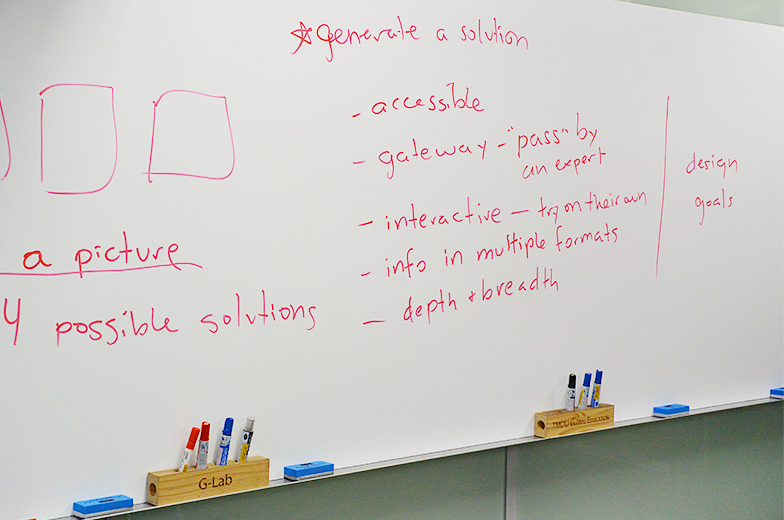 ☆generate a solution
- accessible
- gateway - "pass" by
an expert
- interactive - try on their own
- info in multiple formats
- depth + breadth
design
goals
a picture
4 possible solutions
G-Lab
TMDU Global Education